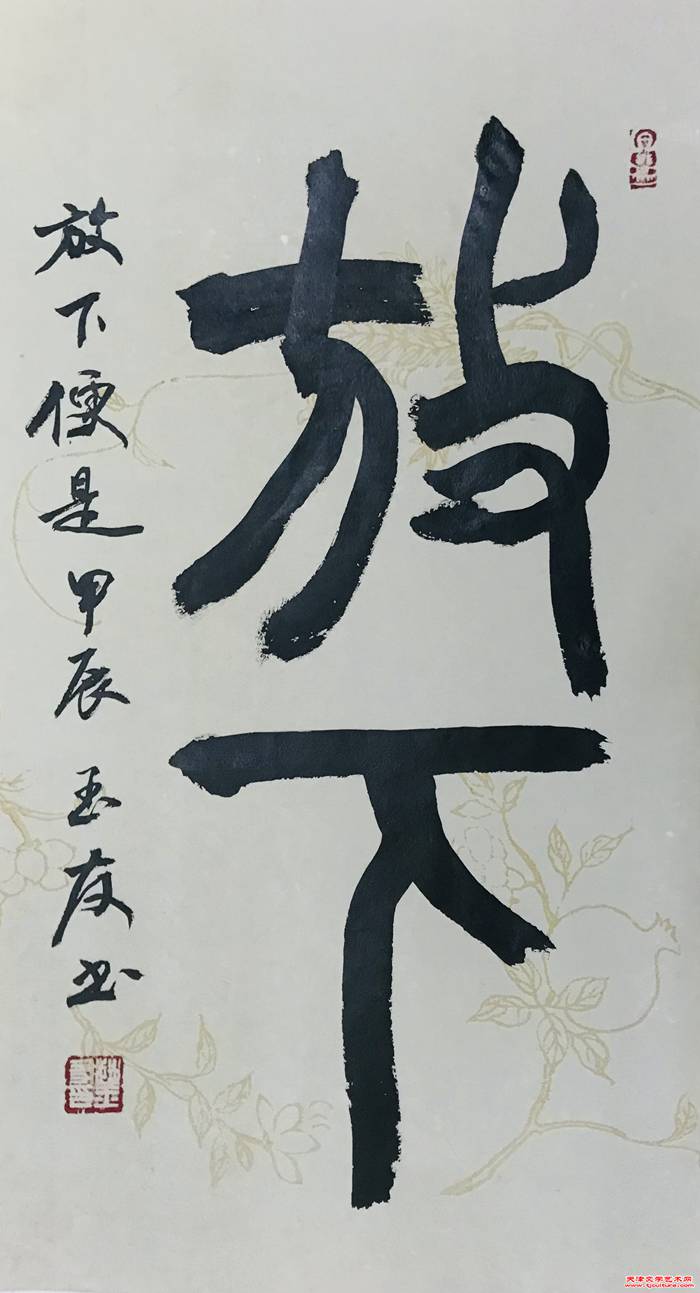 放下
放下便是 甲辰 玉友书
天津文学艺术网
www.tjculture.com